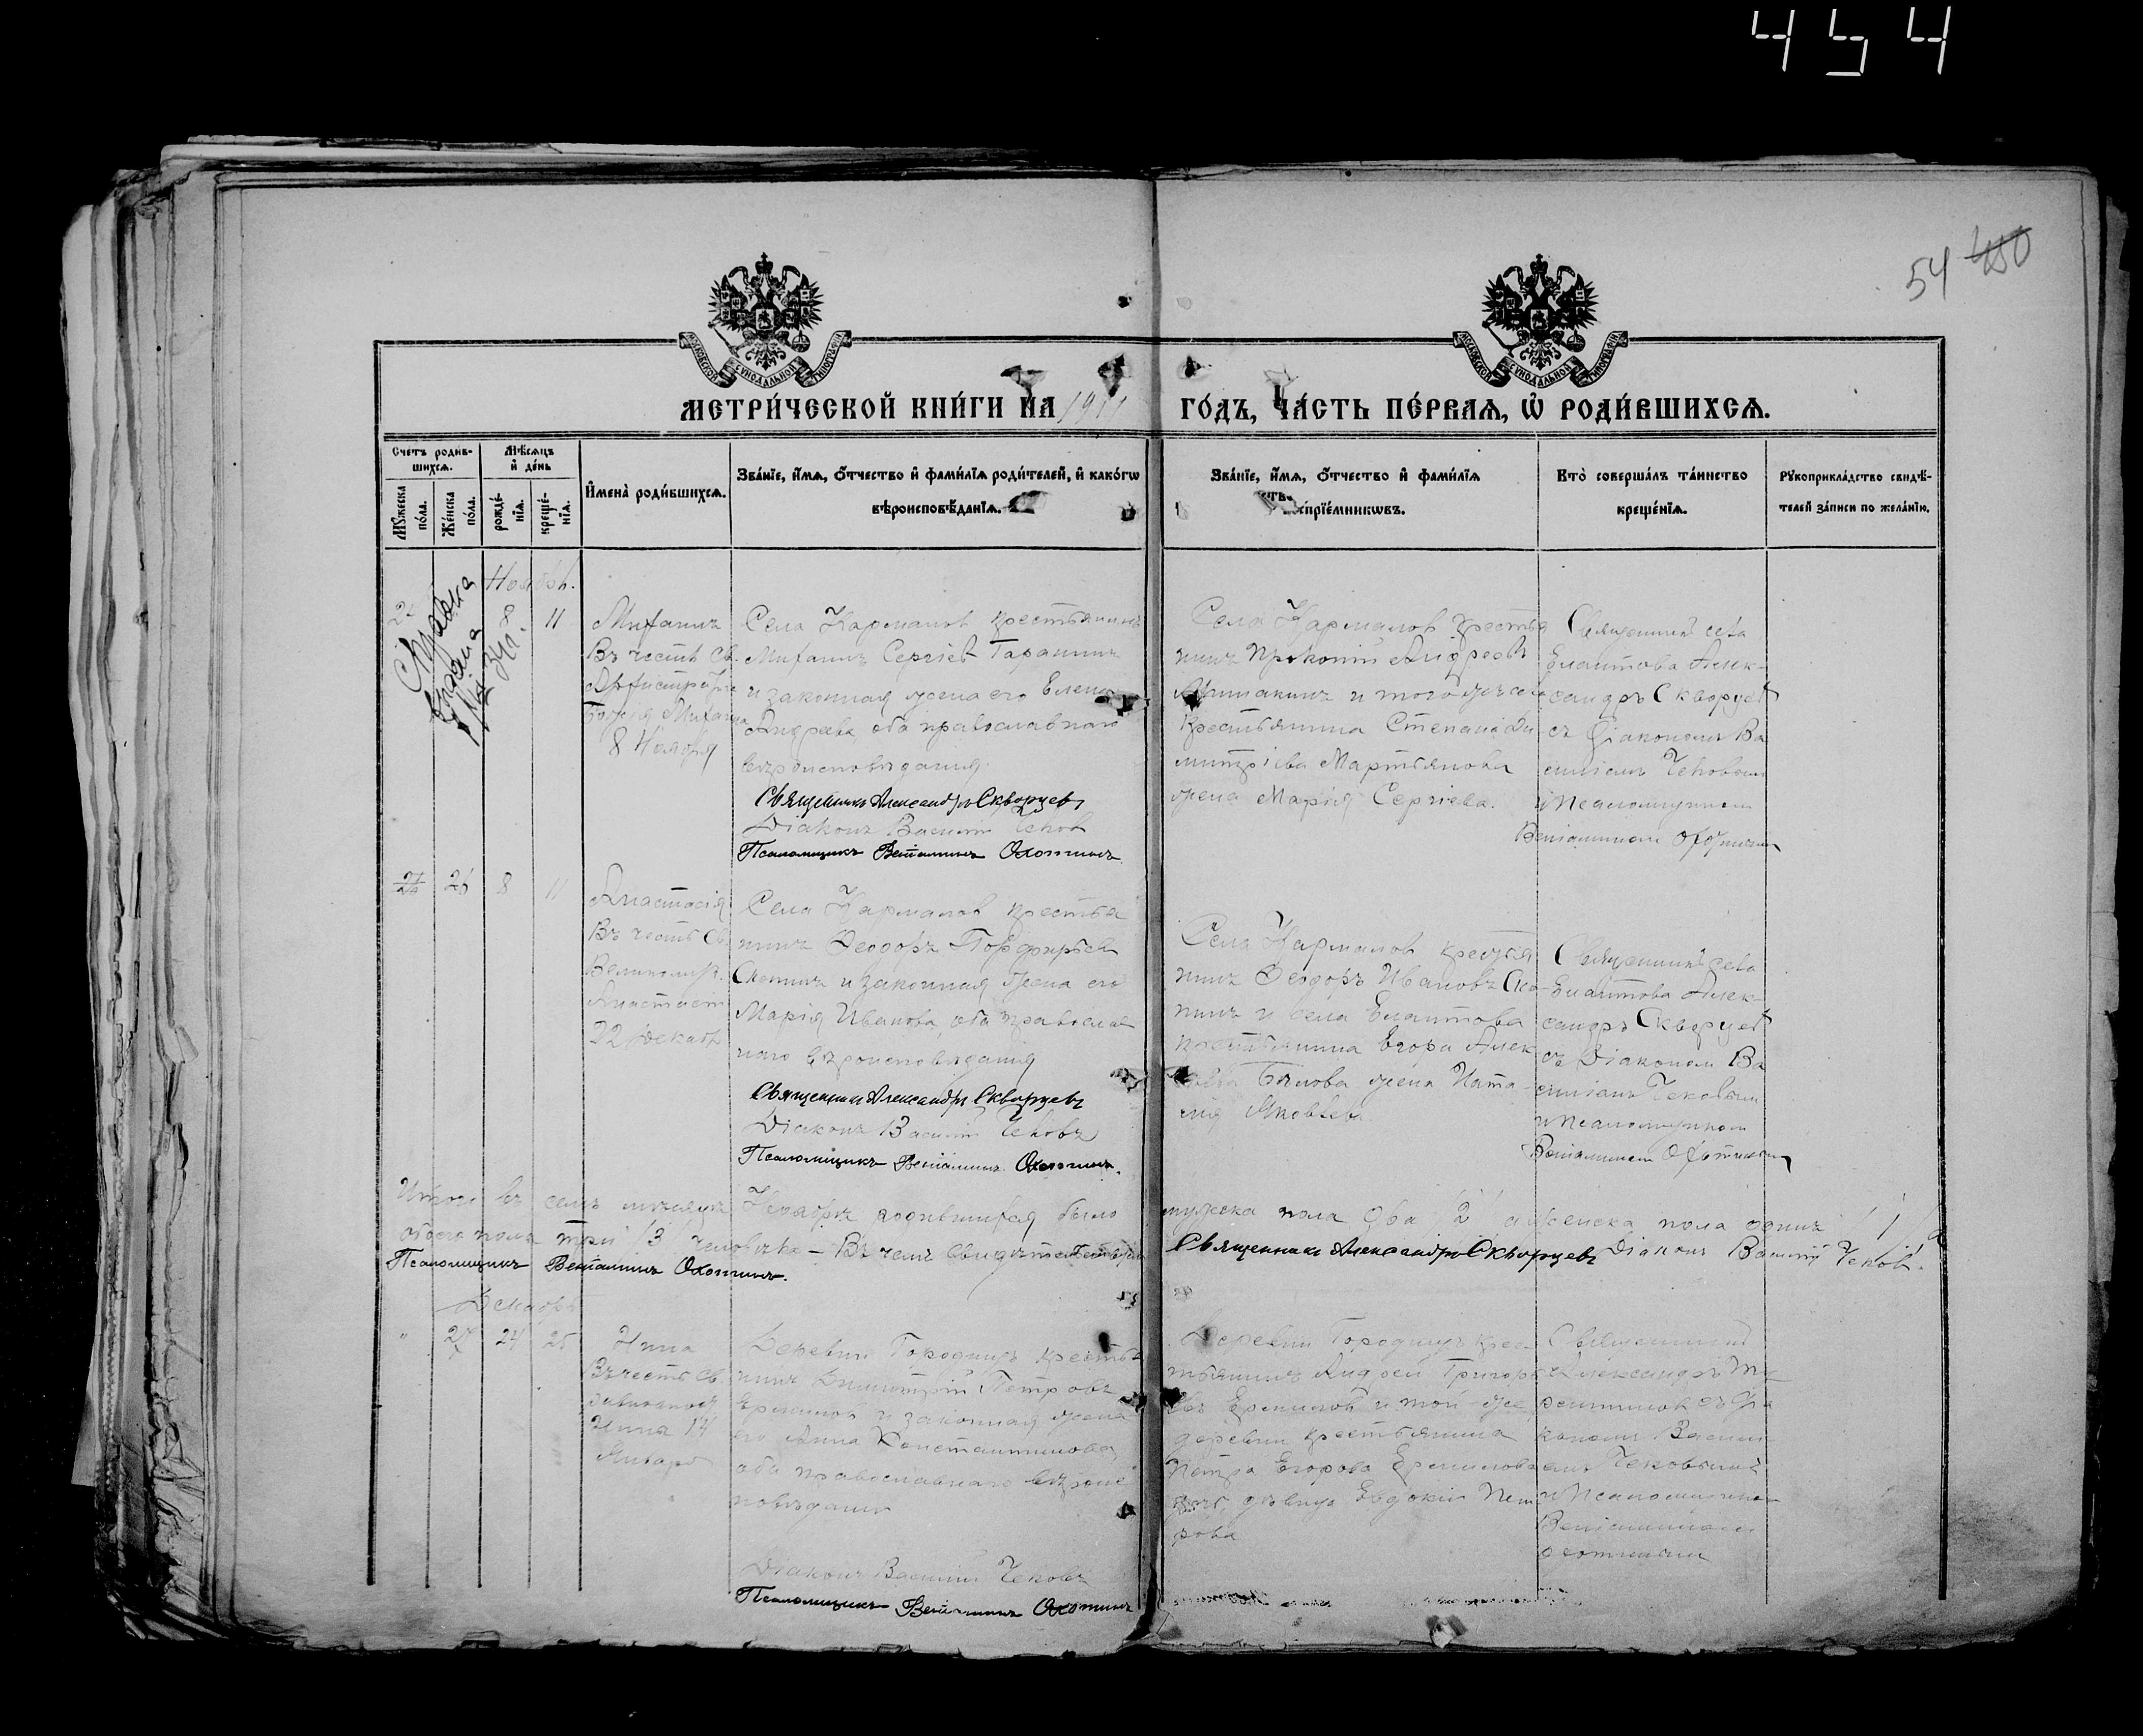 454
54 450
МОСКОВСКОЙ СѴНОДАЛЬНОЙ ТИПОГРАФІИ
МОСКОВСКОЙ СѴНОДАЛЬНОЙ ТИПОГРАФІИ
МЕТРИ́ЧЕСКОЙ КНИ́ГИ НА 1911 ГО́ДЪ, ЧА́СТЬ ПЕ́РВАѦ, Ѽ РОДИ́ВШИХСѦ.
Счетъ роди́в-
шихсѧ.
Мꙋ́жеска
по́ла.
Же́нска
по́ла.
Мѣ́сѧцъ
и҆ де́нь
рожде́-
нїѧ.
креще́-
нїѧ.
И҆мена̀ роди́вшихсѧ.
Зва́нїе, и҆́мѧ, ѻ҆́тчество и҆ фами́лїѧ роди́телей, и҆ како́гѡ
вѣроисповѣ́данїѧ.
Зва́нїе, и҆́мѧ, ѻ҆́тчество и҆ фами́лїѧ
воспрїе́мникѡвъ.
Кто̀ соверша́лъ та́инство
креще́нїѧ.
Рꙋкоприкла́дство свидѣ́-
телей за́писи по жела́нїю.
Ноябрь.
8 11
Справка
Михаилъ
Въ честь Св.
Архистратига
Божія Михаила
8 Ноября
Села Кармановъ крестьянинъ
Михаилъ Сергіевъ Гаранинъ
и законная жена его Елена
Андреева оба православнаго
вѣроисповѣданія.
Священникъ Александръ Скворцевъ
Діаконъ Василій Чековъ
Псаломщикъ Веніаминъ Охотинъ.
Села Кармановъ крестья
нинъ Прокопій Андреевъ
и того же села
крестьянина Степана Ди
митріева Мартьянова
жена Марія Сергіева.
Священникъ села
Елатова Алек-
сандръ Скворцевъ
съ Діакономъ Ва
силіемъ Чековымъ
и Псаломщикомъ
Веніаминомъ Охотинымъ
26 8 11
Анастасія
Въ честь Св.
Великомуч.
Анастасіи
22 Декабр
Села Кармановъ крестья
нинъ Ѳеодоръ Порфирьевъ
Скопинъ и законная жена его
Марія Иванова, оба православ
наго вѣроисповѣданія
Священникъ Александръ Скворцевъ
Діаконъ Василій Чековъ
Псаломщикъ Веніаминъ Охотинъ.
Села Кармановъ крестья
нинъ Ѳеодоръ Ивановъ Ско-
пинъ и села Елатова
крестьянина Егора Алек
Бѣлова жена Ната-
лія Яковлева
Священникъ села
Елатова Алек-
сандръ Скворцевъ
съ Діакономъ Ва
силіемъ Чековымъ
и Псаломщикомъ
Веніаминомъ Охотинымъ
Итого въ семъ мѣсяцѣ Ноябрѣ родившихся было мужеска пола два /2/ а женска пола одинъ /1/ а
обоего пола три /3/ человѣка – Въ чемъ свидѣтельствуемъ Священникъ Александръ Скворцевъ Діаконъ Василій Чековъ.
Псаломщикъ Веніаминъ Охотинъ.
Декабрь
" 27 24 25
Нина
Въ честь Св.
равноапост.
Нины 14
Января
Деревни Городищъ крестья
нинъ Димитрій Петровъ
Ермиловъ и законная жена
его Анна Константинова,
оба православнаго вѣроис
повѣданія
Діаконъ Василій Чековъ
Псаломщикъ Веніаминъ Охотинъ
Деревни Городищъ крес-
тьянинъ Андрей Григорь
евъ Ермиловъ и той-же
деревни крестьянина
Петра Егорова Ермилова
дочь, дѣвица Евдокія Пет
рова
Священникъ
Александръ
съ Діа
кономъ Васили
емъ Чековымъ
и Псаломщико
Веніаминомъ
Охотинымъ